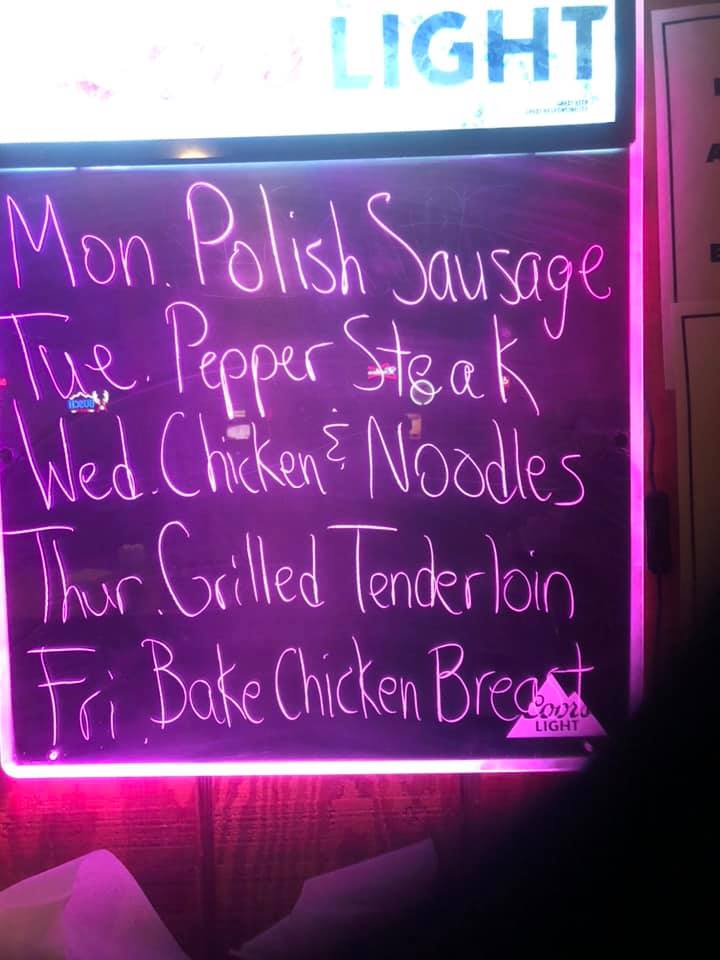 LIGHT
Mon. Polish Sausage
Tue. Pepper Steak
Wed. Chicken & Noodles
Thur. Grilled Tenderloin
Fri. Bake Chicken Breast
Coors
LIGHT